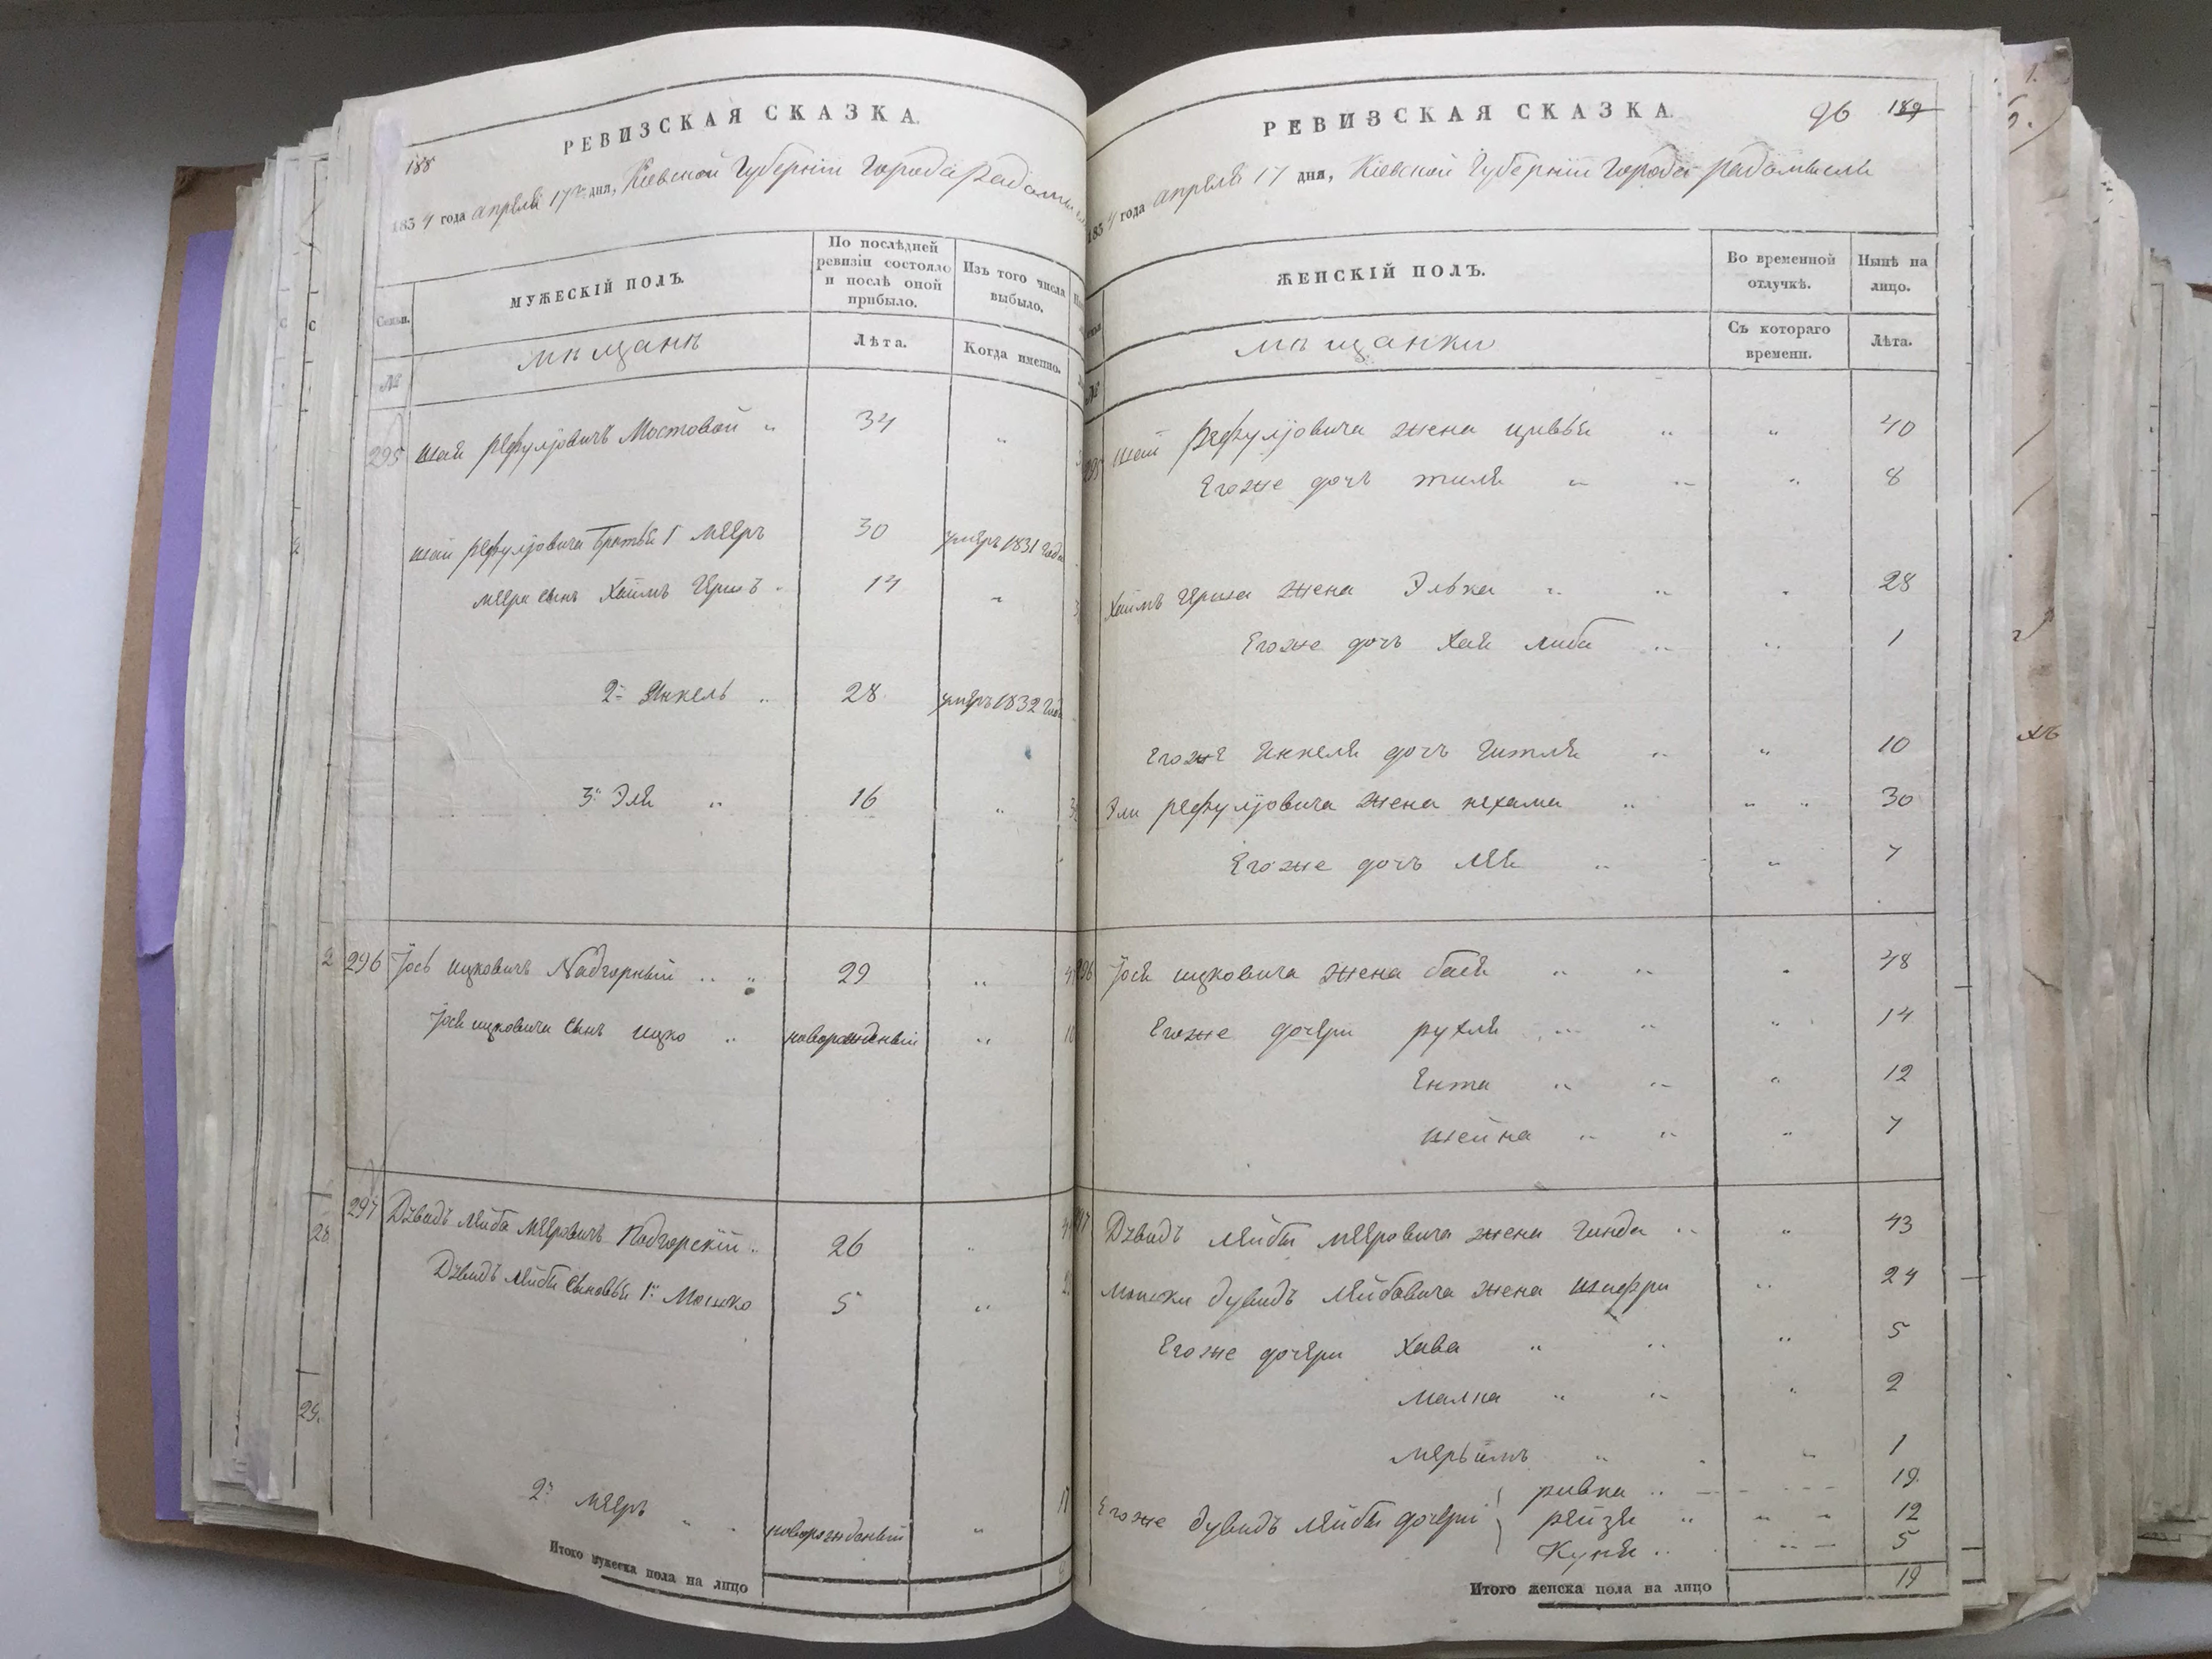 188
РЕВИЗСКАЯ СКАЗКА.
1834 года апреля 17го дня, Кіевской Губерніи Города Радомы
Семьи. МУЖЕСКІЙ ПОЛЪ. По послѣдней ревизіи состояло и послѣ оной прибыло. Изъ того числа выбыло.
№ мѣщанъ Лѣта. Когда именно.
295 шая рефулјовичъ Мостовой „ 34 „
шаи рефулјовича братья 1 меер 30 умеръ 1831 года
меера сынъ Хаимъ Герш „ 14 „
2й Янкель „ 28 умеръ 1832 года
3й Эля „ 16 „
296 Јось ицковичъ Надгорный „ „ 29 „
Јося ицковича сынъ ицко „ новорожденный „
297 Дувидъ лейба мееровичъ Подгорскій „ 26 „
Дувидъ лейбы сыновья 1й Мошко 5 „
2й мееръ „ „ новорожденный „
Итого мужеска пола на лицо
РЕВИЗСКАЯ СКАЗКА.
96 189
1834 года апреля 17 дня, Кіевской Губерніи города радомысля
ЖЕНСКІЙ ПОЛЪ. Во временной отлучкѣ. Нынѣ на лицо.
№ мѣщанки Съ котораго времени. Лѣта.
295 шаи рефулјовича жена цивья „ „ 40
Егоже дочь тиля „ „ „ 8
Хаимъ Герша жена Элька „ „ „ 28
Егоже дочь Хая либа „ „ 1
Егоже Янкеля дочь Гитля „ „ 10
Эли рефулјовича жена нехама „ „ „ 30
Егоже дочь лея „ „ 7
296 Јося ицковича жена бася „ „ „ 48
Егоже дочери рухля „ „ „ 14
Ента „ „ „ 12
шейна „ „ „ 7
297 Дувидъ лейбы мееровича жена Гинда „ „ 43
мошки дувидъ лейбовича жена шифри „ 24
Егоже дочери Хава „ „ „ 5
малка „ „ „ 2
мерьимъ „ „ 1
ривка „ 19
Егоже дувидъ лейбы дочери рейзя „ „ „ 12
Куня „ „ 5
Итого женска пола на лицо 19